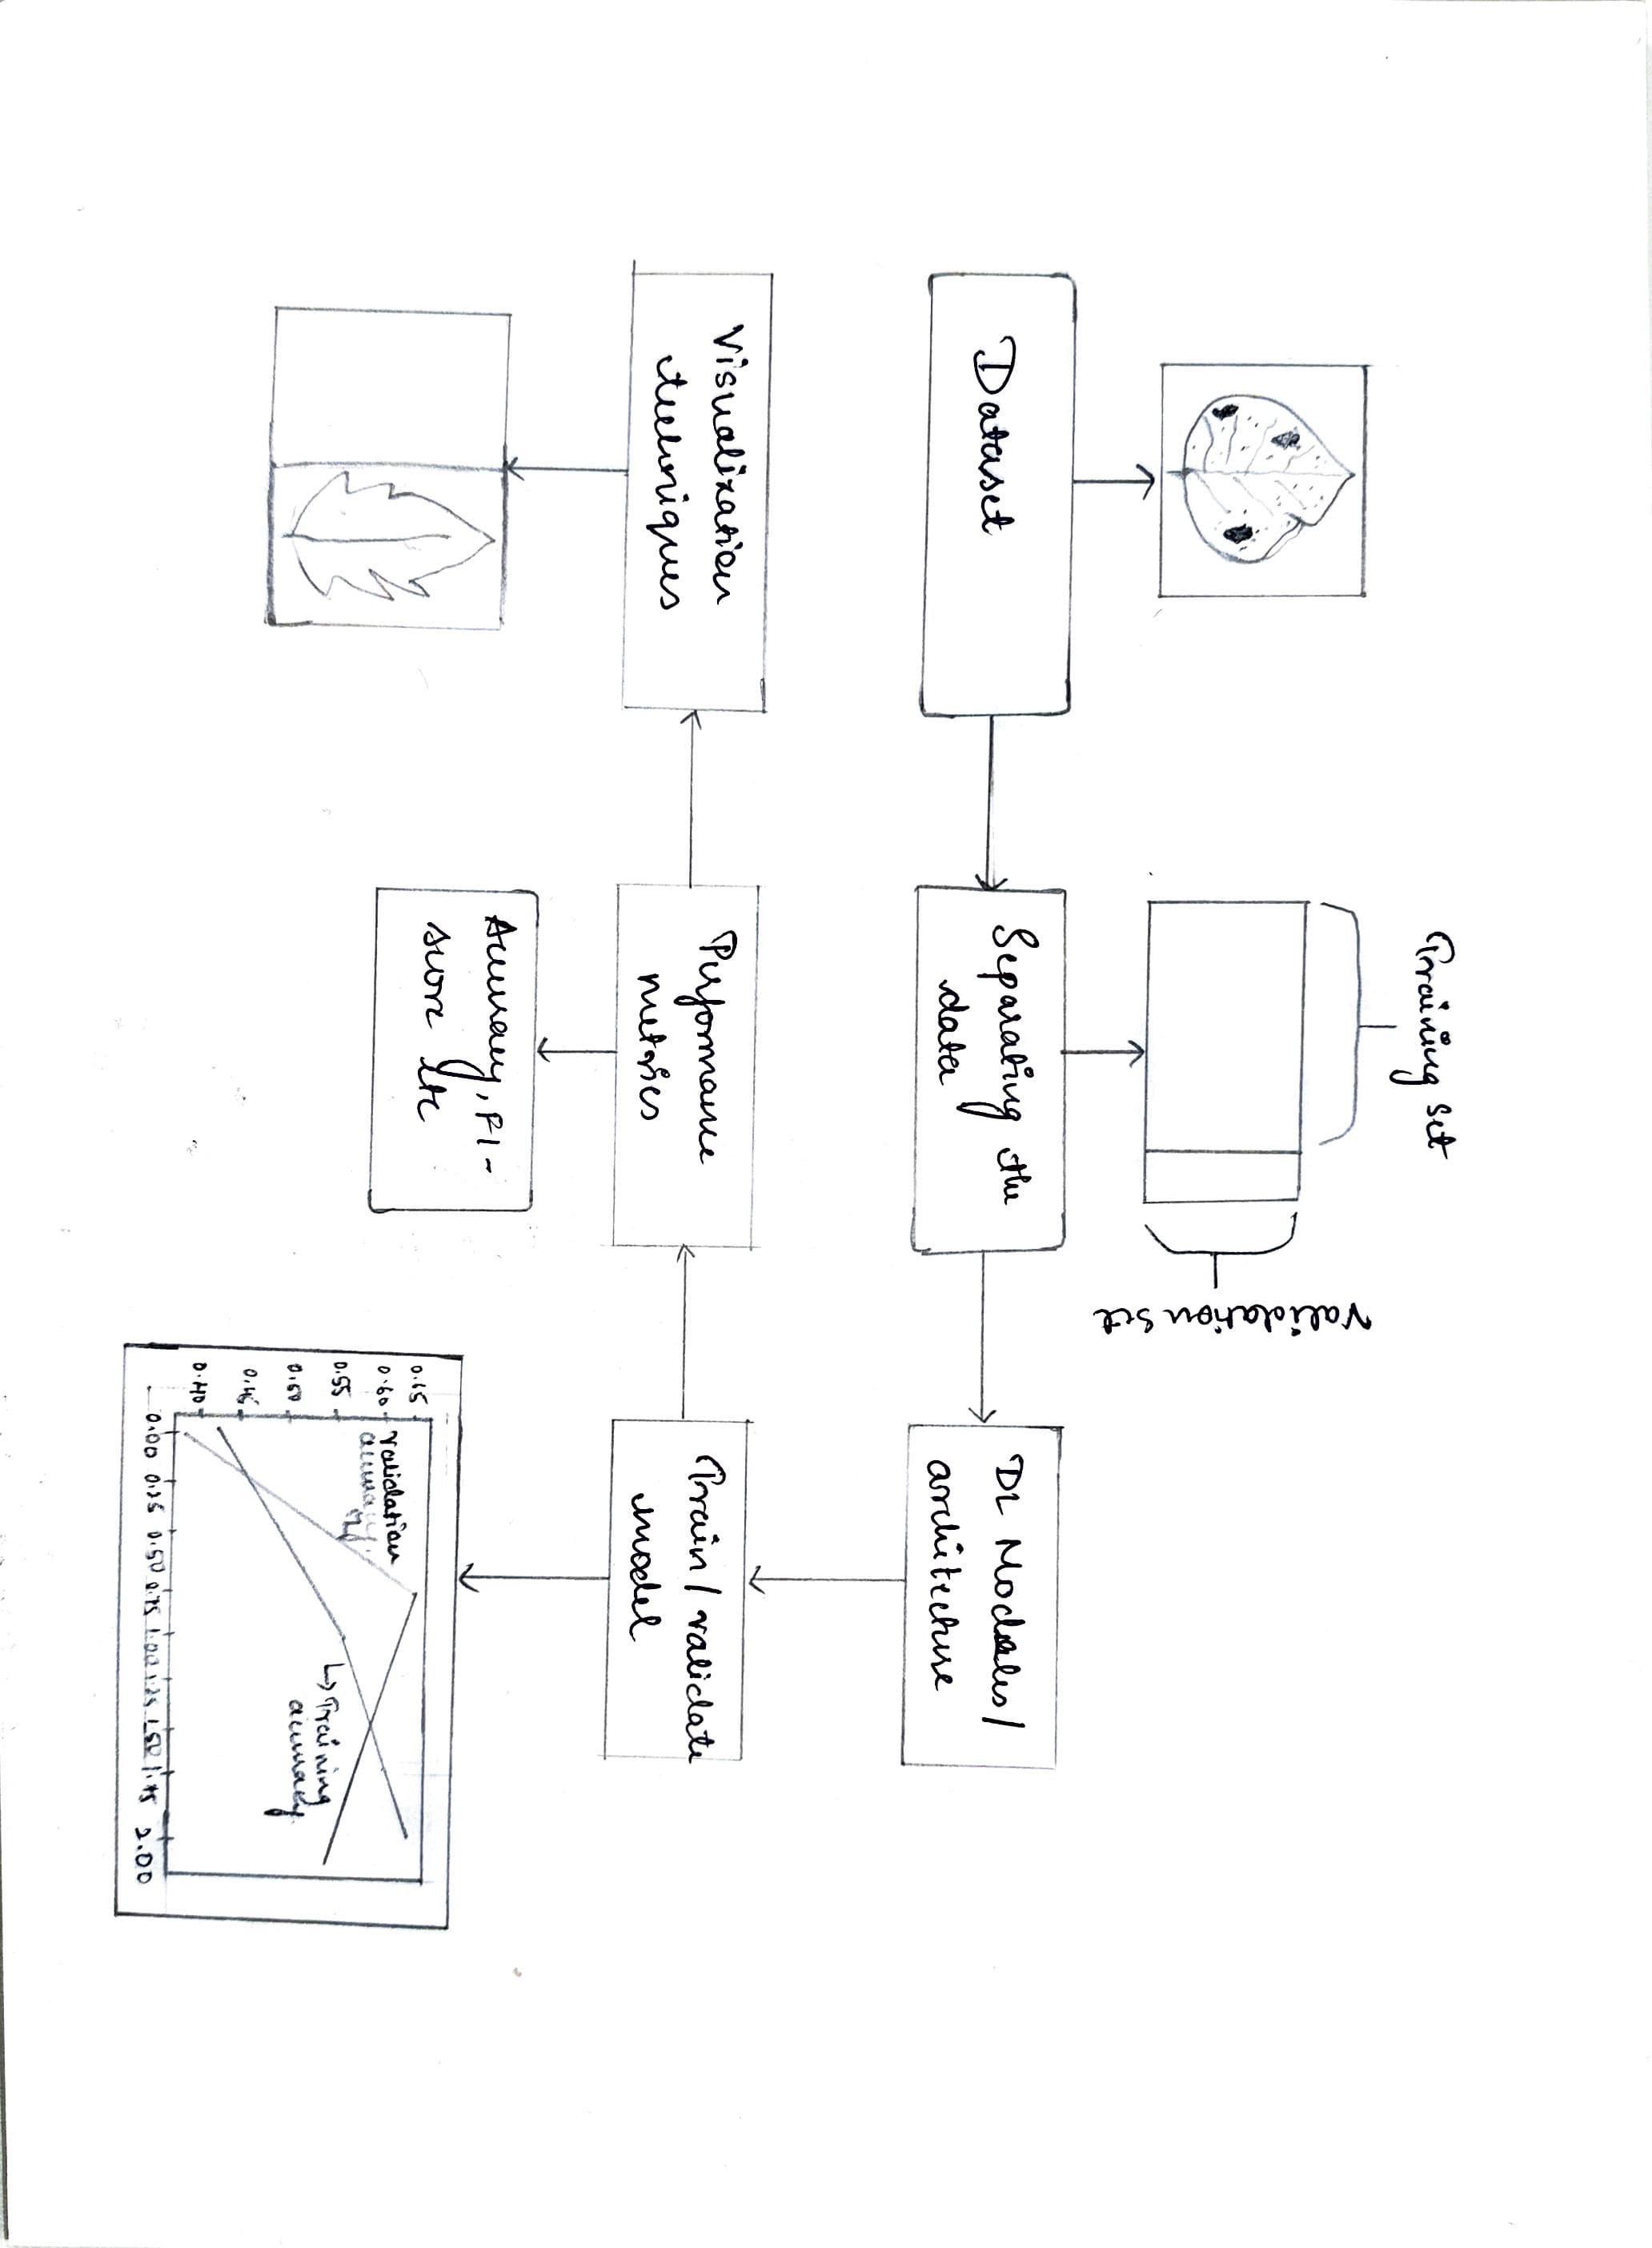 Training set
Validation set
Dataset
Separating the
data
DL Modeles/
architecture
Visualization
techniques
Performance
metrics
Train / validate
model
Accuracy, F1-
score etc
0.65
0.60
0.55
0.50
0.45
0.40
validation
accuracy
↳ Training
accuracy
0.00 0.25 0.50 0.75 1.00 1.25 1.50 1.75 2.00